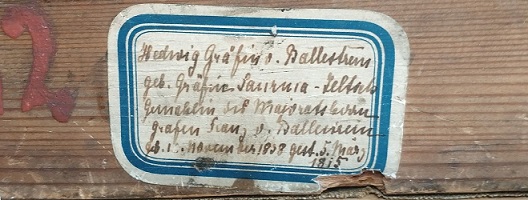 Hedwig Gräfin v. Ballestrem
geb. Gräfin Saurma-Jeltsch
Gemahlin des Majoratsherrn
Grafen Franz v. Ballestrem
geb. 1. November 1838 gest. 5. März
1915